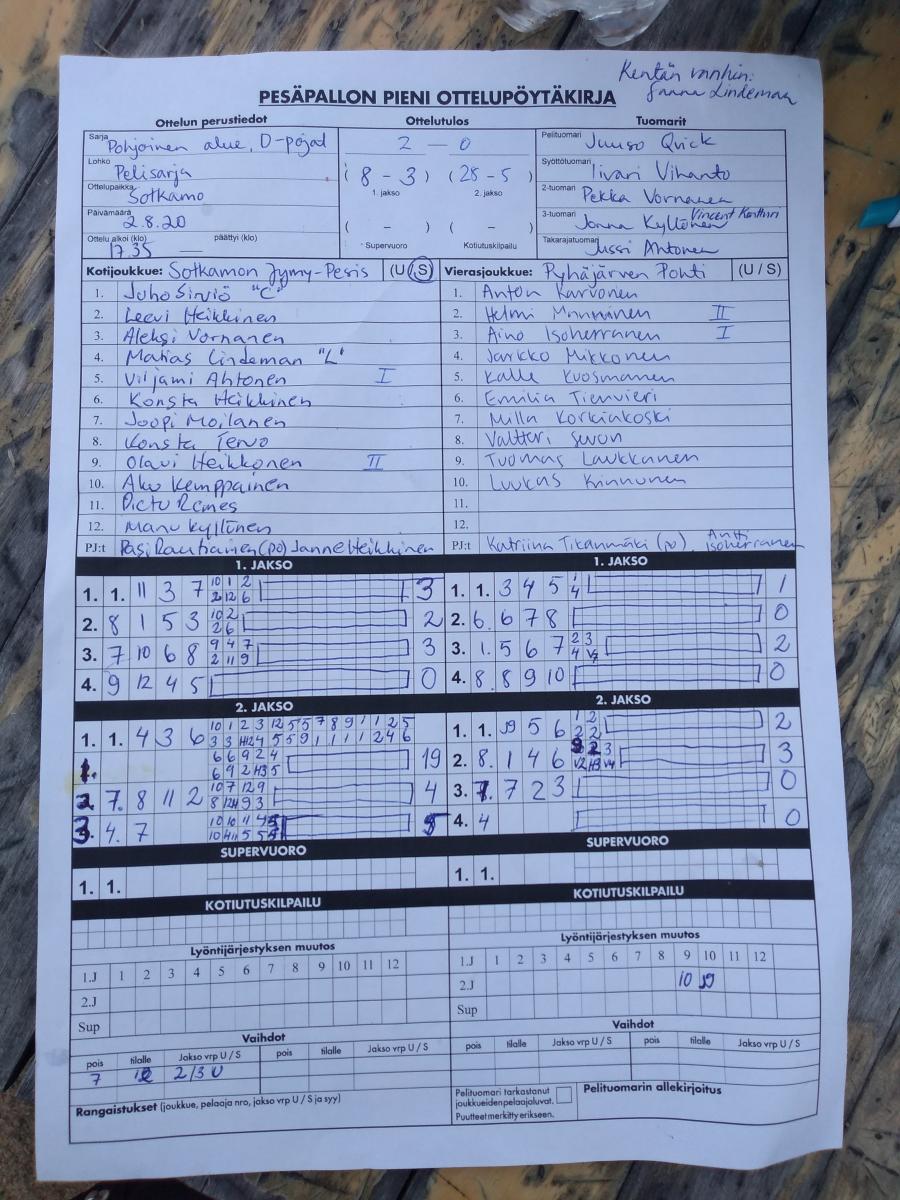 Kentän vanhin:
PESÄPALLON PIENI OTTELUPÖYTÄKIRJA
Ottelun perustiedot Ottelutulos Tuomarit
Sarja Pohjoinen alue, D-pojat 2 – 0 Pelituomari Juuso Quick
Lohko Pelisarja (8 – 3) (28 – 5) Syöttötuomari Iivari Vihanto
1. jakso 2. jakso
Ottelupaikka Sotkamo 2-tuomari Pekka Vornanen
Päivämäärä 2.8.20 ( – ) ( – ) 3-tuomari Jonna Kyllönen Vincent
Ottelu alkoi (klo) 17.35 päättyi (klo) — Supervuoro Kotiutuskilpailu Takarajatuomari Jussi Ahtonen
Kotijoukkue: Sotkamon Jymy-Pesis (U/S) Vierasjoukkue: Pyhäjärven Pohti (U / S)
1. Juho Sirviö "C" 1. Anton Karvonen
2. Leevi Heikkinen 2. Helmi Manninen II
3. Aleksi Vornanen 3. Aino Isoherranen I
4. Matias Lindeman "L" 4. Jarkko Mikkonen
5. Viljami Ahtonen I 5. Kalle Kuosmanen
6. Konsta Heikkinen 6. Emilia Tienvieri
7. Joopi Moilanen 7. Milla Korkiakoski
8. Konsta Tervo 8. Valtteri
9. Olavi Heikkonen II 9. Tuomas Laukkanen
10. Aku Kemppainen 10. Luukas Kinnunen
11. Remes 11.
12. Manu Kyllönen 12.
PJ:t Pasi Rautiainen (po) Janne Heikkinen PJ:t Katriina Tikanmäki (po) Antti Isoherranen
1. JAKSO 1. JAKSO
1. 1. 11 3 7 10 1 2 3 1. 1. 3 4 5 1 1
2 12 6 4
2. 8 1 5 3 10 2 2 2. 6. 6 7 8 0
2 6
3. 7 10 6 8 9 4 7 3 3. 1. 5 6 7 2 3 2
2 11 9 4
4. 9 12 4 5 0 4. 8. 8 9 10 0
2. JAKSO 2. JAKSO
1. 1. 4 3 6 10 1 2 3 12 5 5 7 8 9 1 1 2 5 1. 1. 5 6 1 2 2
2 2
1. 6 6 9 2 4 19 2. 8. 1 4 6 3
6 9 2
2. 7. 8 11 2 10 7 12 9 4 3. 7. 7 2 3 0
3. 4. 7 5 4. 4 0
SUPERVUORO SUPERVUORO
1. 1. 1. 1.
KOTIUTUSKILPAILU KOTIUTUSKILPAILU
Lyöntijärjestyksen muutos Lyöntijärjestyksen muutos
1.J 1 2 3 4 5 6 7 8 9 10 11 12 1.J 1 2 3 4 5 6 7 8 9 10 11 12
2.J 2.J 10
Sup Sup
Vaihdot Vaihdot
pois tilalle Jakso vrp U / S pois tilalle Jakso vrp U / S pois tilalle Jakso vrp U / S pois tilalle Jakso vrp U / S
7 12 2/3 U
Rangaistukset (joukkue, pelaaja nro, jakso vrp U / S ja syy) Pelituomari tarkastanut Pelituomarin allekirjoitus
joukkueiden pelaajaluvat.
Puutteet merkitty erikseen.